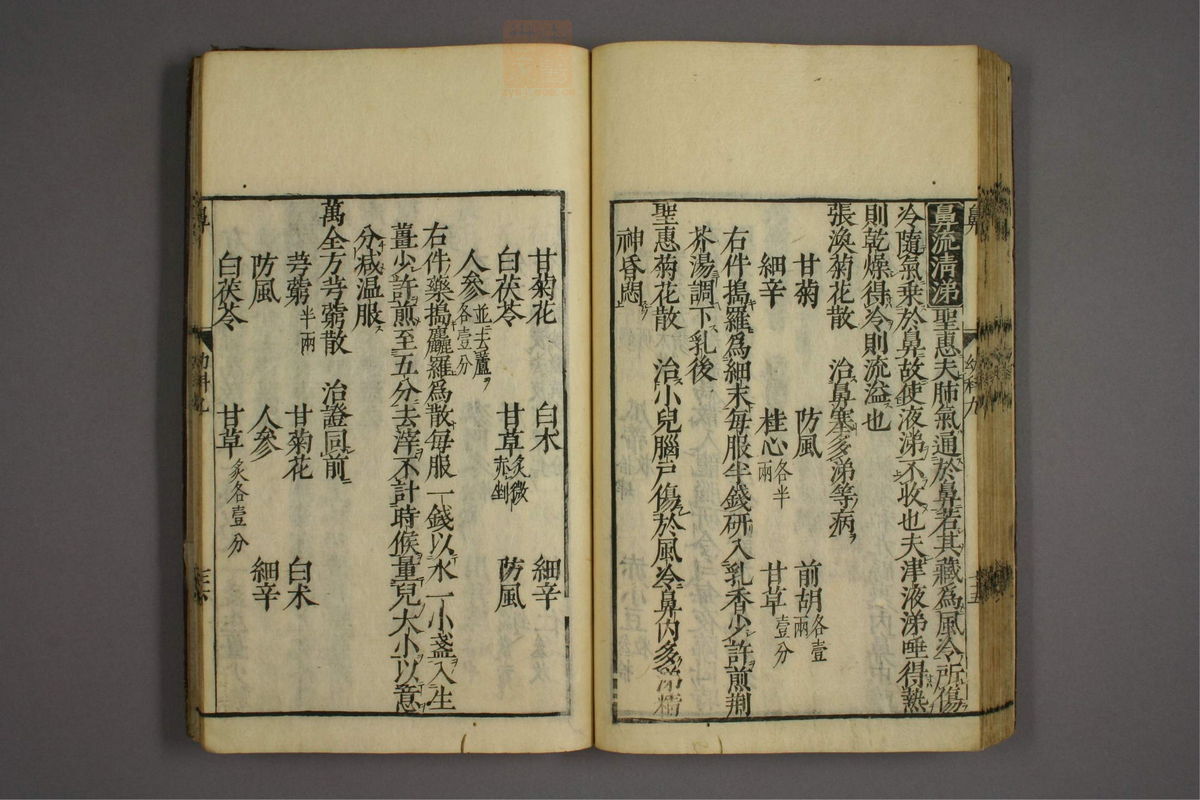 鼻流清涕 聖惠夫肺氣通於鼻若其藏為風冷所傷
冷隨氣乗於鼻故使液涕不收也夫津液涕唾得熱
則乾燥得冷則流溢也
張渙菊花散 治鼻塞多涕等病
甘菊 防風 前胡各壹兩
細辛 桂心各半兩 甘草壹分
右件搗羅爲細末每服半錢研入乳香少許煎荆
芥湯調下乳後
聖惠菊花散 治小兒腦戶傷於風冷鼻内多涕精
神昏悶
甘菊花 白朮 細辛
白茯苓 甘草炙微赤剉 防風
人參並去蘆各壹分
右件藥搗麤羅爲散每服一錢以水一小盞入生
薑少許煎至五分去滓不計時候量兒大小以意
分减温服
萬全方芎藭散 治證同前
芎藭半兩 甘菊花 白朮
防風 人參 細辛
白茯苓 甘草炙各壹分
鼻
幼科九
三十六